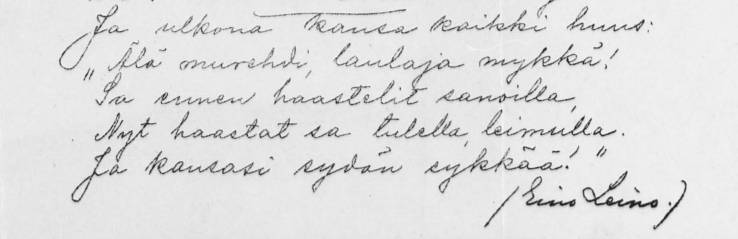 Ja ulkona kansa kaikki huus:
„Älä murehdi, laulaja mykkä!
Sa ennen haastelit sanoilla,
Nyt haastat sa tulella, leimulla.
Ja kansasi sydän sykkää!"
(Eino Leino.)